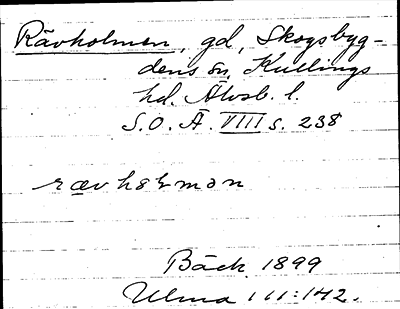 Rävholmen, gd, Skogsbyg-
dens sn, Kullings
hd. Älvsb. l.
S.O. Ä. VIII s. 238
rævhɷlmən
Bäck 1899
Ulma 111:142.